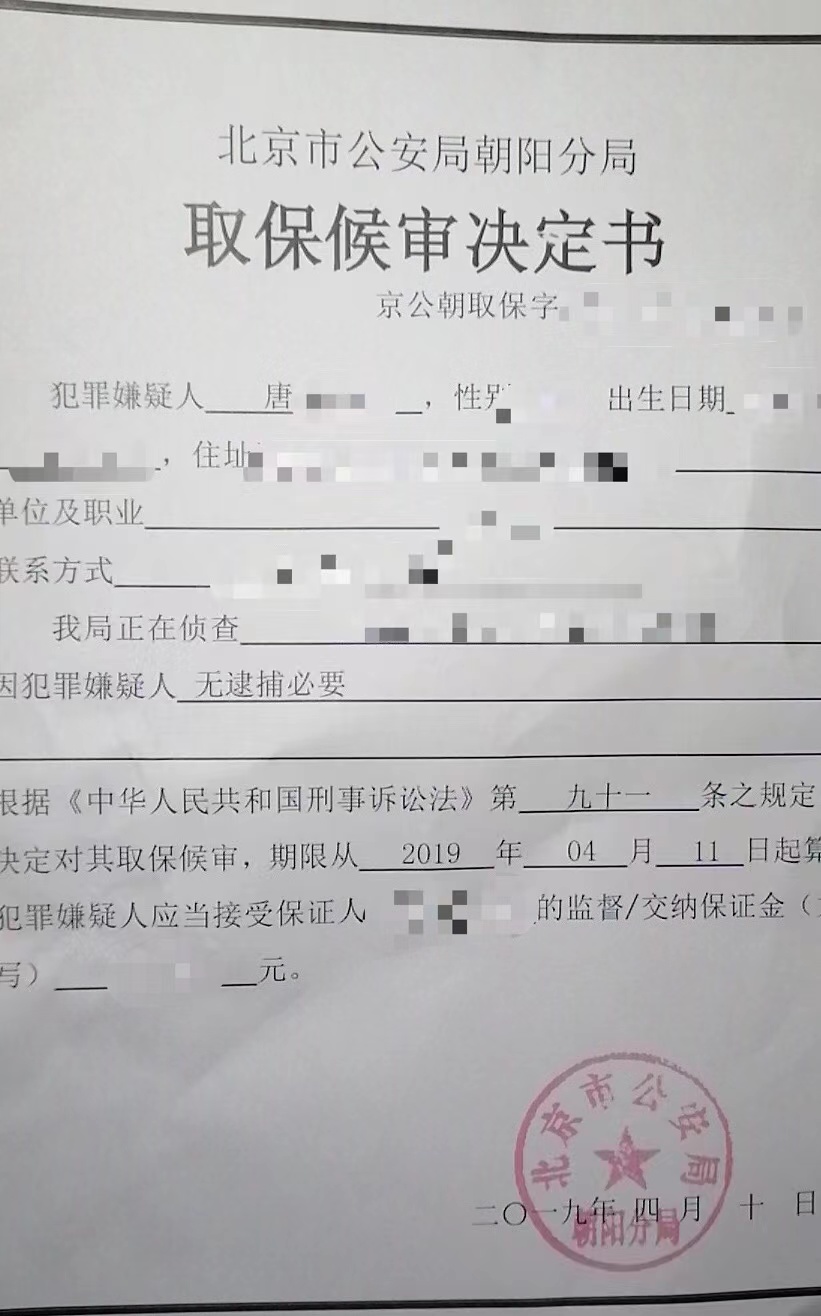 北京市公安局朝阳分局
取保候审决定书
京公朝取保字
犯罪嫌疑人 唐 ，性别 出生日期
，住址
单位及职业
联系方式
我局正在侦查
因犯罪嫌疑人 无逮捕必要
根据《中华人民共和国刑事诉讼法》第 九十一 条之规定
决定对其取保候审，期限从 2019 年 04 月 11 日起算
犯罪嫌疑人应当接受保证人 的监督/交纳保证金（
写） 元。
北京市公安局
二〇一九年四月十日
朝阳分局